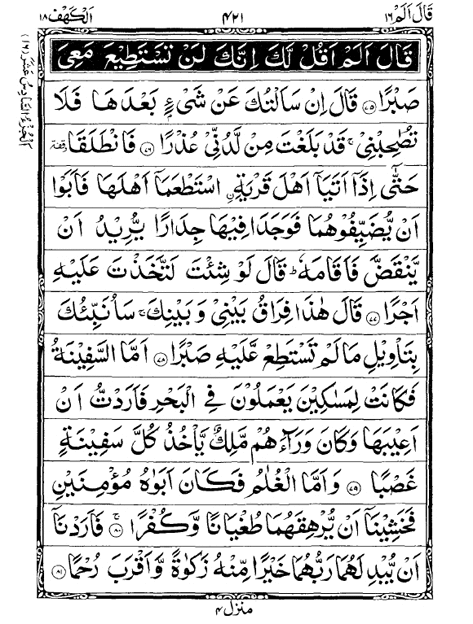 قَالَ اَلَمْ ١٦
٤٢١
اَلْكَهْف ١٨
قَالَ اَلَمْ اَقُلْ لَّكَ اِنَّكَ لَنْ تَسْتَطِيْعَ مَعِىَ
صَبْرًا ۝٧٥ قَالَ اِنْ سَاَلْتُكَ عَنْ شَىْءٍۭ بَعْدَهَا فَلَا
تُصٰحِبْنِىْ ۚ قَدْ بَلَغْتَ مِنْ لَّدُنِّىْ عُذْرًا ۝٧٦ فَانْطَلَقَا ۥوقفة
حَتّٰٓى اِذَآ اَتَيَآ اَهْلَ قَرْيَةِۨ اسْتَطْعَمَآ اَهْلَهَا فَاَبَوْا
اَنْ يُّضَيِّفُوْهُمَا فَوَجَدَا فِيْهَا جِدَارًا يُّرِيْدُ اَنْ
يَّنْقَضَّ فَاَقَامَهٗ ؕ قَالَ لَوْ شِئْتَ لَتَّخَذْتَ عَلَيْهِ
اَجْرًا ۝٧٧ قَالَ هٰذَا فِرَاقُ بَيْنِىْ وَبَيْنِكَ ۚ سَاُنَبِّئُكَ
بِتَاْوِيْلِ مَا لَمْ تَسْتَطِعْ عَّلَيْهِ صَبْرًا ۝٧٨ اَمَّا السَّفِيْنَةُ
فَكَانَتْ لِمَسٰكِيْنَ يَعْمَلُوْنَ فِى الْبَحْرِ فَاَرَدْتُّ اَنْ
اَعِيْبَهَا وَكَانَ وَرَآءَهُمْ مَّلِكٌ يَّاْخُذُ كُلَّ سَفِيْنَةٍ
غَصْبًا ۝٧٩ وَاَمَّا الْغُلٰمُ فَكَانَ اَبَوٰهُ مُؤْمِنَيْنِ
فَخَشِيْنَآ اَنْ يُّرْهِقَهُمَا طُغْيَانًا وَّكُفْرًا ۝٨٠ فَاَرَدْنَآ
اَنْ يُّبْدِلَهُمَا رَبُّهُمَا خَيْرًا مِّنْهُ زَكٰوةً وَّاَقْرَبَ رُحْمًا ۝٨١
منزل ٤
اَلْجُزْءُ السَّادِسُ عَشَرَ (١٦)